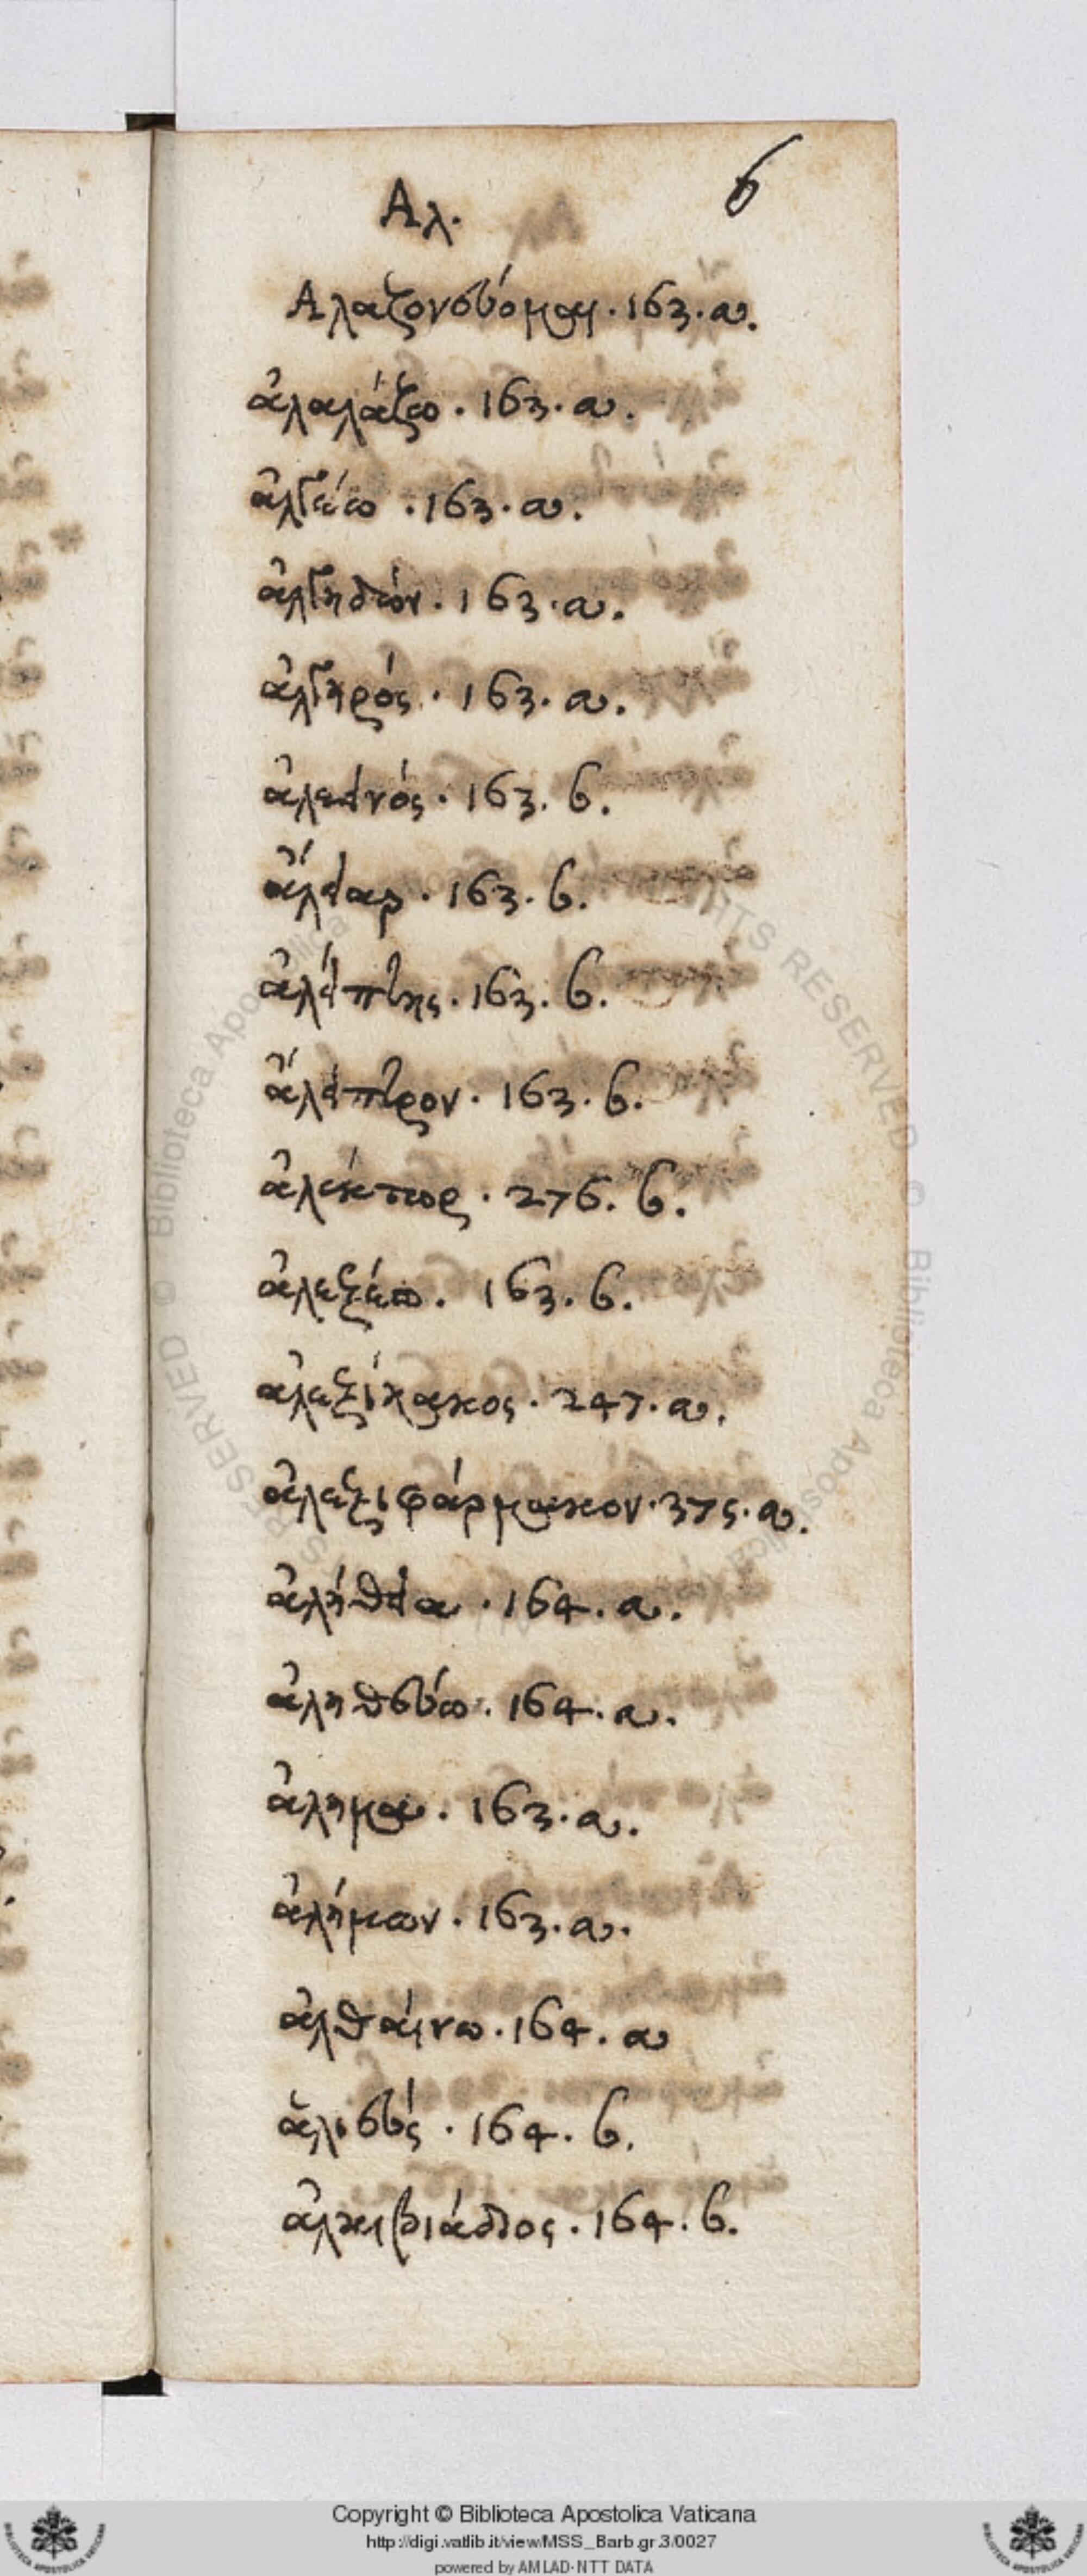 6
Αλ.
Αλαζονεύομαι. 163. a.
ἀλαλάζω. 163. a.
ἀλγέω. 163. a.
ἀλγηδών. 163. a.
ἀλγηρός. 163. a.
ἀλεεινός. 163. b.
ἄλειαρ. 163. b.
ἀλείπτης. 163. b.
ἄλειπτρον. 163. b.
ἀλέκτωρ. 276. b.
ἀλεξέω. 163. b.
ἀλεξίκακος. 247. a.
ἀλεξιφάρμακον. 375. a.
ἀλήθεια. 164. a.
ἀληθεύω. 164. a.
ἀλημα. 163. a.
ἀλήμων. 163. a.
ἀλθαίνω. 164. a
ἁλιεύς. 164. b.
ἀλκιβιάδιος. 164. b.
Copyright © Biblioteca Apostolica Vaticana
http://digi.vatlib.it/view/MSS_Barb.gr.3/0027
powered by AMLAD-NTT DATA